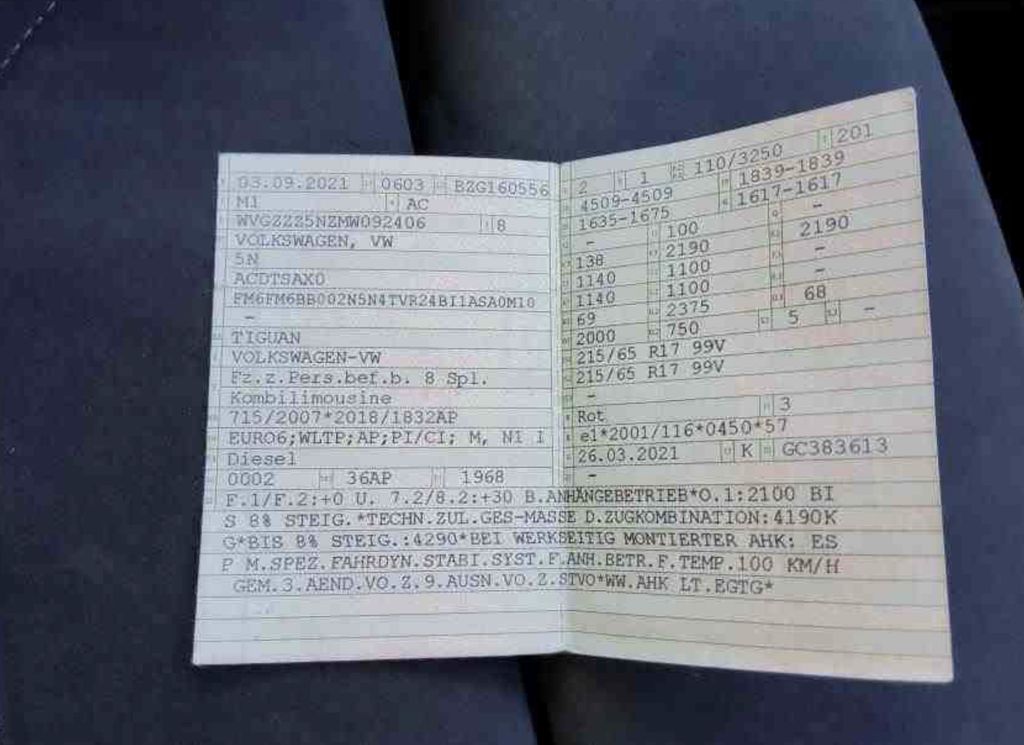 03.09.2021 0603 BZG160556
M1 AC
WVGZZZ5NZMW092406 8
VOLKSWAGEN, VW
5N
ACDTSAX0
FM6FM6BB002N5N4TVR24BI1ASA0M10
-
TIGUAN
VOLKSWAGEN-VW
Fz.z.Pers.bef.b. 8 Spl.
Kombilimousine
715/2007*2018/1832AP
EURO6;WLTP;AP;PI/CI; M, N1 I
Diesel
0002 36AP 1968
2 1 110/3250 201
4509-4509 1839-1839
1635-1675 1617-1617
- 100 -
138 2190 2190
1140 1100 -
1140 1100 -
69 2375 68
2000 750 5 -
215/65 R17 99V
215/65 R17 99V
-
Rot 3
e1*2001/116*0450*57
26.03.2021 K GC383613
-
F.1/F.2:+0 U. 7.2/8.2:+30 B.ANHÄNGEBETRIEB*O.1:2100 BI
S 8% STEIG.*TECHN.ZUL.GES-MASSE D.ZUGKOMBINATION:4190K
G*BIS 8% STEIG.:4290*BEI WERKSEITIG MONTIERTER AHK: ES
P M.SPEZ.FAHRDYN.STABI.SYST.F.ANH.BETR.F.TEMP.100 KM/H
GEM.3.AEND.VO.Z.9.AUSN.VO.Z.STVO*WW.AHK LT.EGTG*